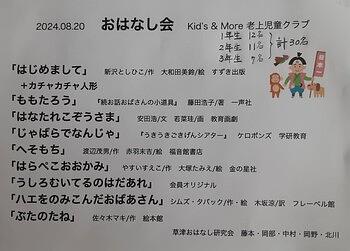 2024.08.20 おはなし会 Kid's & More 老上児童クラブ
1年生 12名
2年生 11名
3年生 7名
計30名
「はじめまして」 新沢としひこ/作 大和田美鈴/絵 すずき出版
+カチャカチャ人形
「ももたろう」 「続お話おばさんの小道具」 藤田浩子/著 一声社
「はなたれこぞうさま」 安田浩/文 若菜珪/画 教育画劇
「じゃばらでなんじゃ」 「うきうきごきげんシアター」 ケロポンズ 学研教育
「へそもち」 渡辺茂男/作 赤羽末吉/絵 福音館書店
「はらぺこおおかみ」 やすいすえこ/作 大塚たみえ/絵 金の星社
「うしろむいてるのはだあれ」 会員オリジナル
「ハエをのみこんだおばあさん」 シムズ・タバック/作・絵 木坂涼/訳 フレーベル館
「ぶたのたね」 佐々木マキ/作 絵本館
日本一
草津おはなし研究会 藤本・岡部・中村・岡野・北川